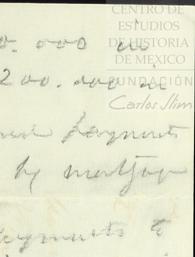 CENTRO DE
ESTUDIOS
DE HISTORIA
DE MEXICO
FUNDACIÓN
Carlos Slim
0.000 in
200.000 in
payments
by mortgage
payments to